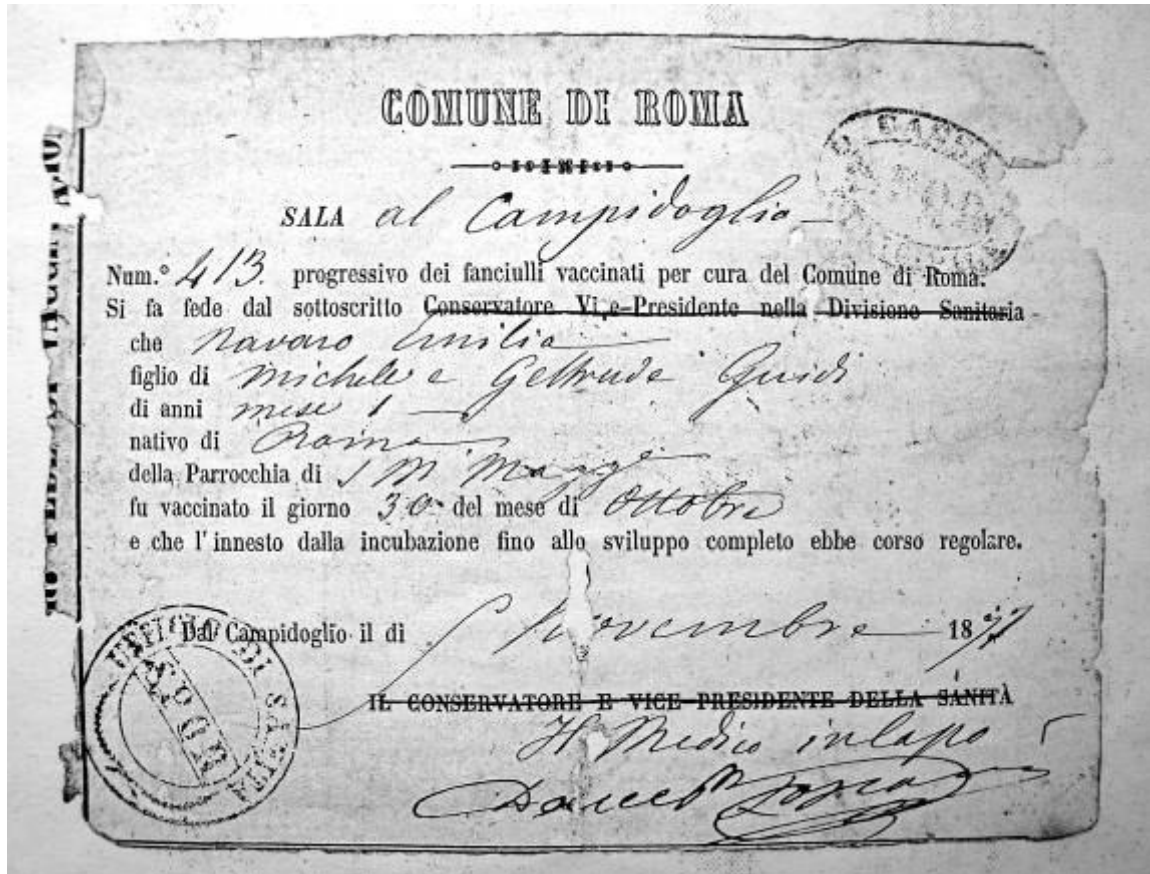 COMUNE DI ROMA
SALA al Campidoglio
Num.° 413. progressivo dei fanciulli vaccinati per cura del Comune di Roma.
Si fa fede dal sottoscritto Conservatore Vice-Presidente nella Divisione Sanitaria
che Navaro Emilia
figlio di Michele e Geltrude Guidi
di anni mese 1
nativo di Roma
della Parrocchia di S M Magge
fu vaccinato il giorno 30 del mese di Ottobre
e che l'innesto dalla incubazione fino allo sviluppo completo ebbe corso regolare.
Dal Campidoglio il dì Novembre 18
IL CONSERVATORE E VICE-PRESIDENTE DELLA SANITÀ
Il Medico
UFFICIO DI
SPQR